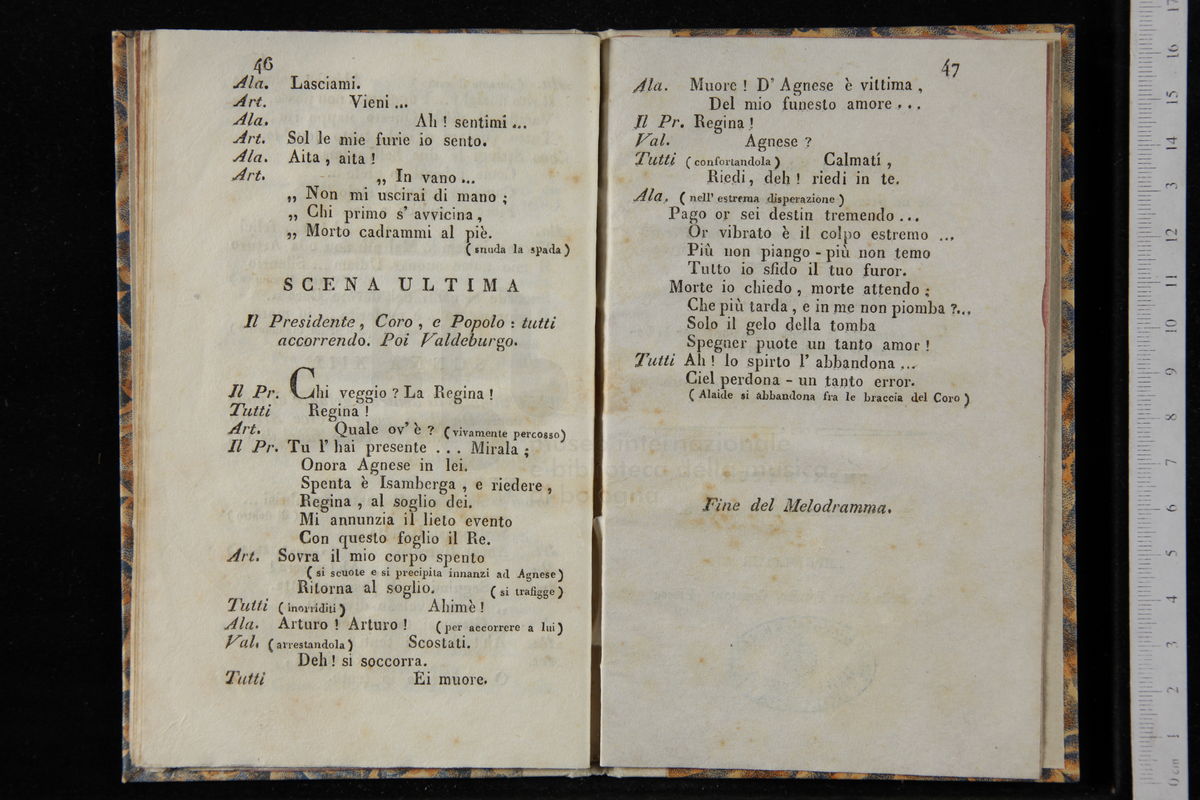 46
Ala. Lasciami.
Art. Vieni ...
Ala. Ah ! sentimi ...
Art. Sol le mie furie io sento.
Ala. Aita , aita !
Art. „ In vano ...
„ Non mi uscirai di mano ;
„ Chi primo s' avvicina ,
„ Morto cadrammi al piè.
( snuda la spada )
SCENA ULTIMA
Il Presidente , Coro , e Popolo : tutti
accorrendo. Poi Valdeburgo.
Il Pr. Chi veggio ? La Regina !
Tutti Regina !
Art. Quale ov' è ? ( vivamente percosso)
Il Pr. Tu l' hai presente . . . Mirala ;
Onora Agnese in lei.
Spenta è Isamberga , e riedere ,
Regina , al soglio dei.
Mi annunzia il lieto evento
Con questo foglio il Re.
Art. Sovra il mio corpo spento
( si scuote e si precipita innanzi ad Agnese )
Ritorna al soglio. ( si trafigge )
Tutti ( inorriditi ) Ahimè !
Ala. Arturo ! Arturo ! ( per accorrere a lui )
Val. ( arrestandola ) Scostati.
Deh ! si soccorra.
Tutti Ei muore.
47
Ala. Muore ! D' Agnese è vittima ,
Del mio funesto amore . . .
Il Pr. Regina !
Val. Agnese ?
Tutti ( confortandola ) Calmatí ,
Riedi , deh ! riedi in te.
Ala. ( nell' estrema disperazione )
Pago or sei destin tremendo . . .
Or vibrato è il colpo estremo ...
Più non piango - più non temo
Tutto io sfido il tuo furor.
Morte io chiedo , morte attendo ;
Che più tarda , e in me non piomba ?...
Solo il gelo della tomba
Spegner puote un tanto amor !
Tutti Ah ! lo spirto l' abbandona ...
Ciel perdona - un tanto error.
( Alaide si abbandona fra le braccia del Coro )
Fine del Melodramma.
museo internazionale
e biblioteca della musica
di bologna
0 cm 1 2 3 4 5 6 7 8 9 10 11 12 13 14 15 16 17